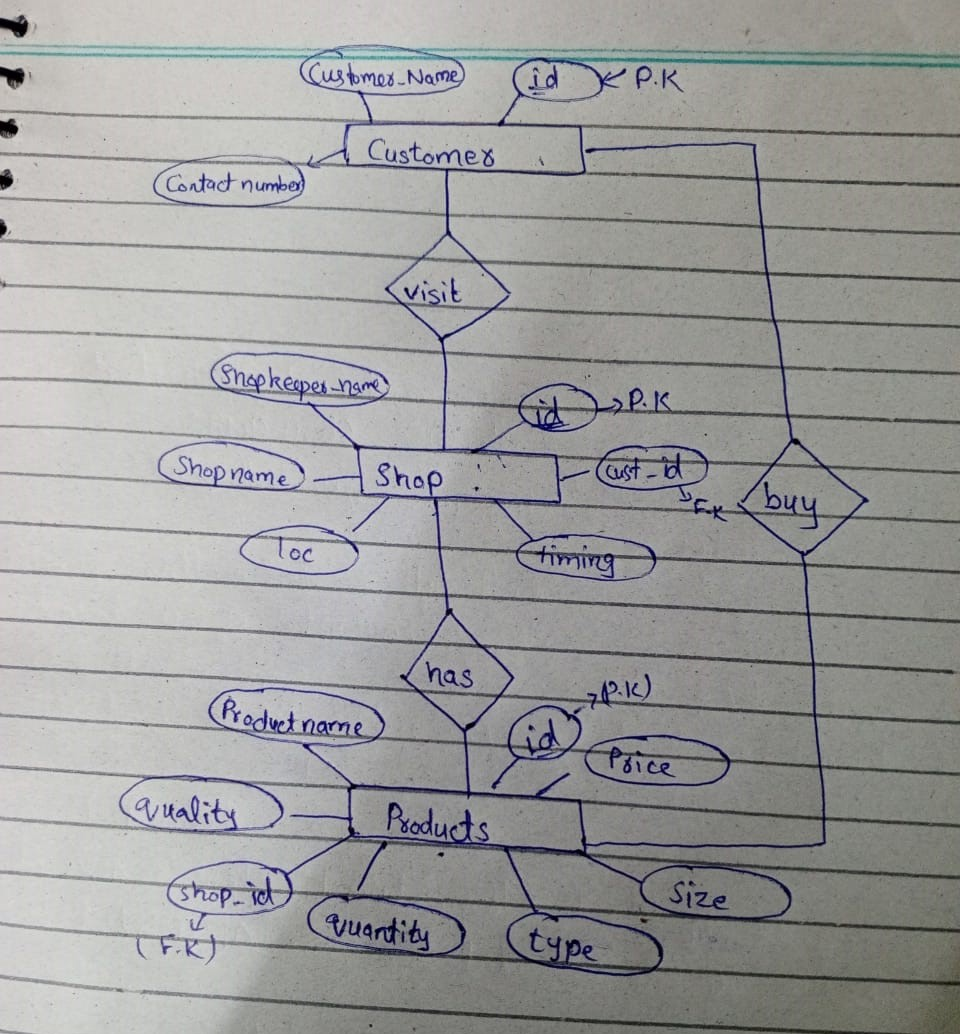 Customer_Name
id
P.K
Customer
Contact number
visit
Shopkeeper_name
id
P.K
Shop name
Shop
cust_id
F.K
buy
loc
timing
has
Product name
id
(P.K)
Price
quality
Products
shop_id
(F.K)
quantity
type
size